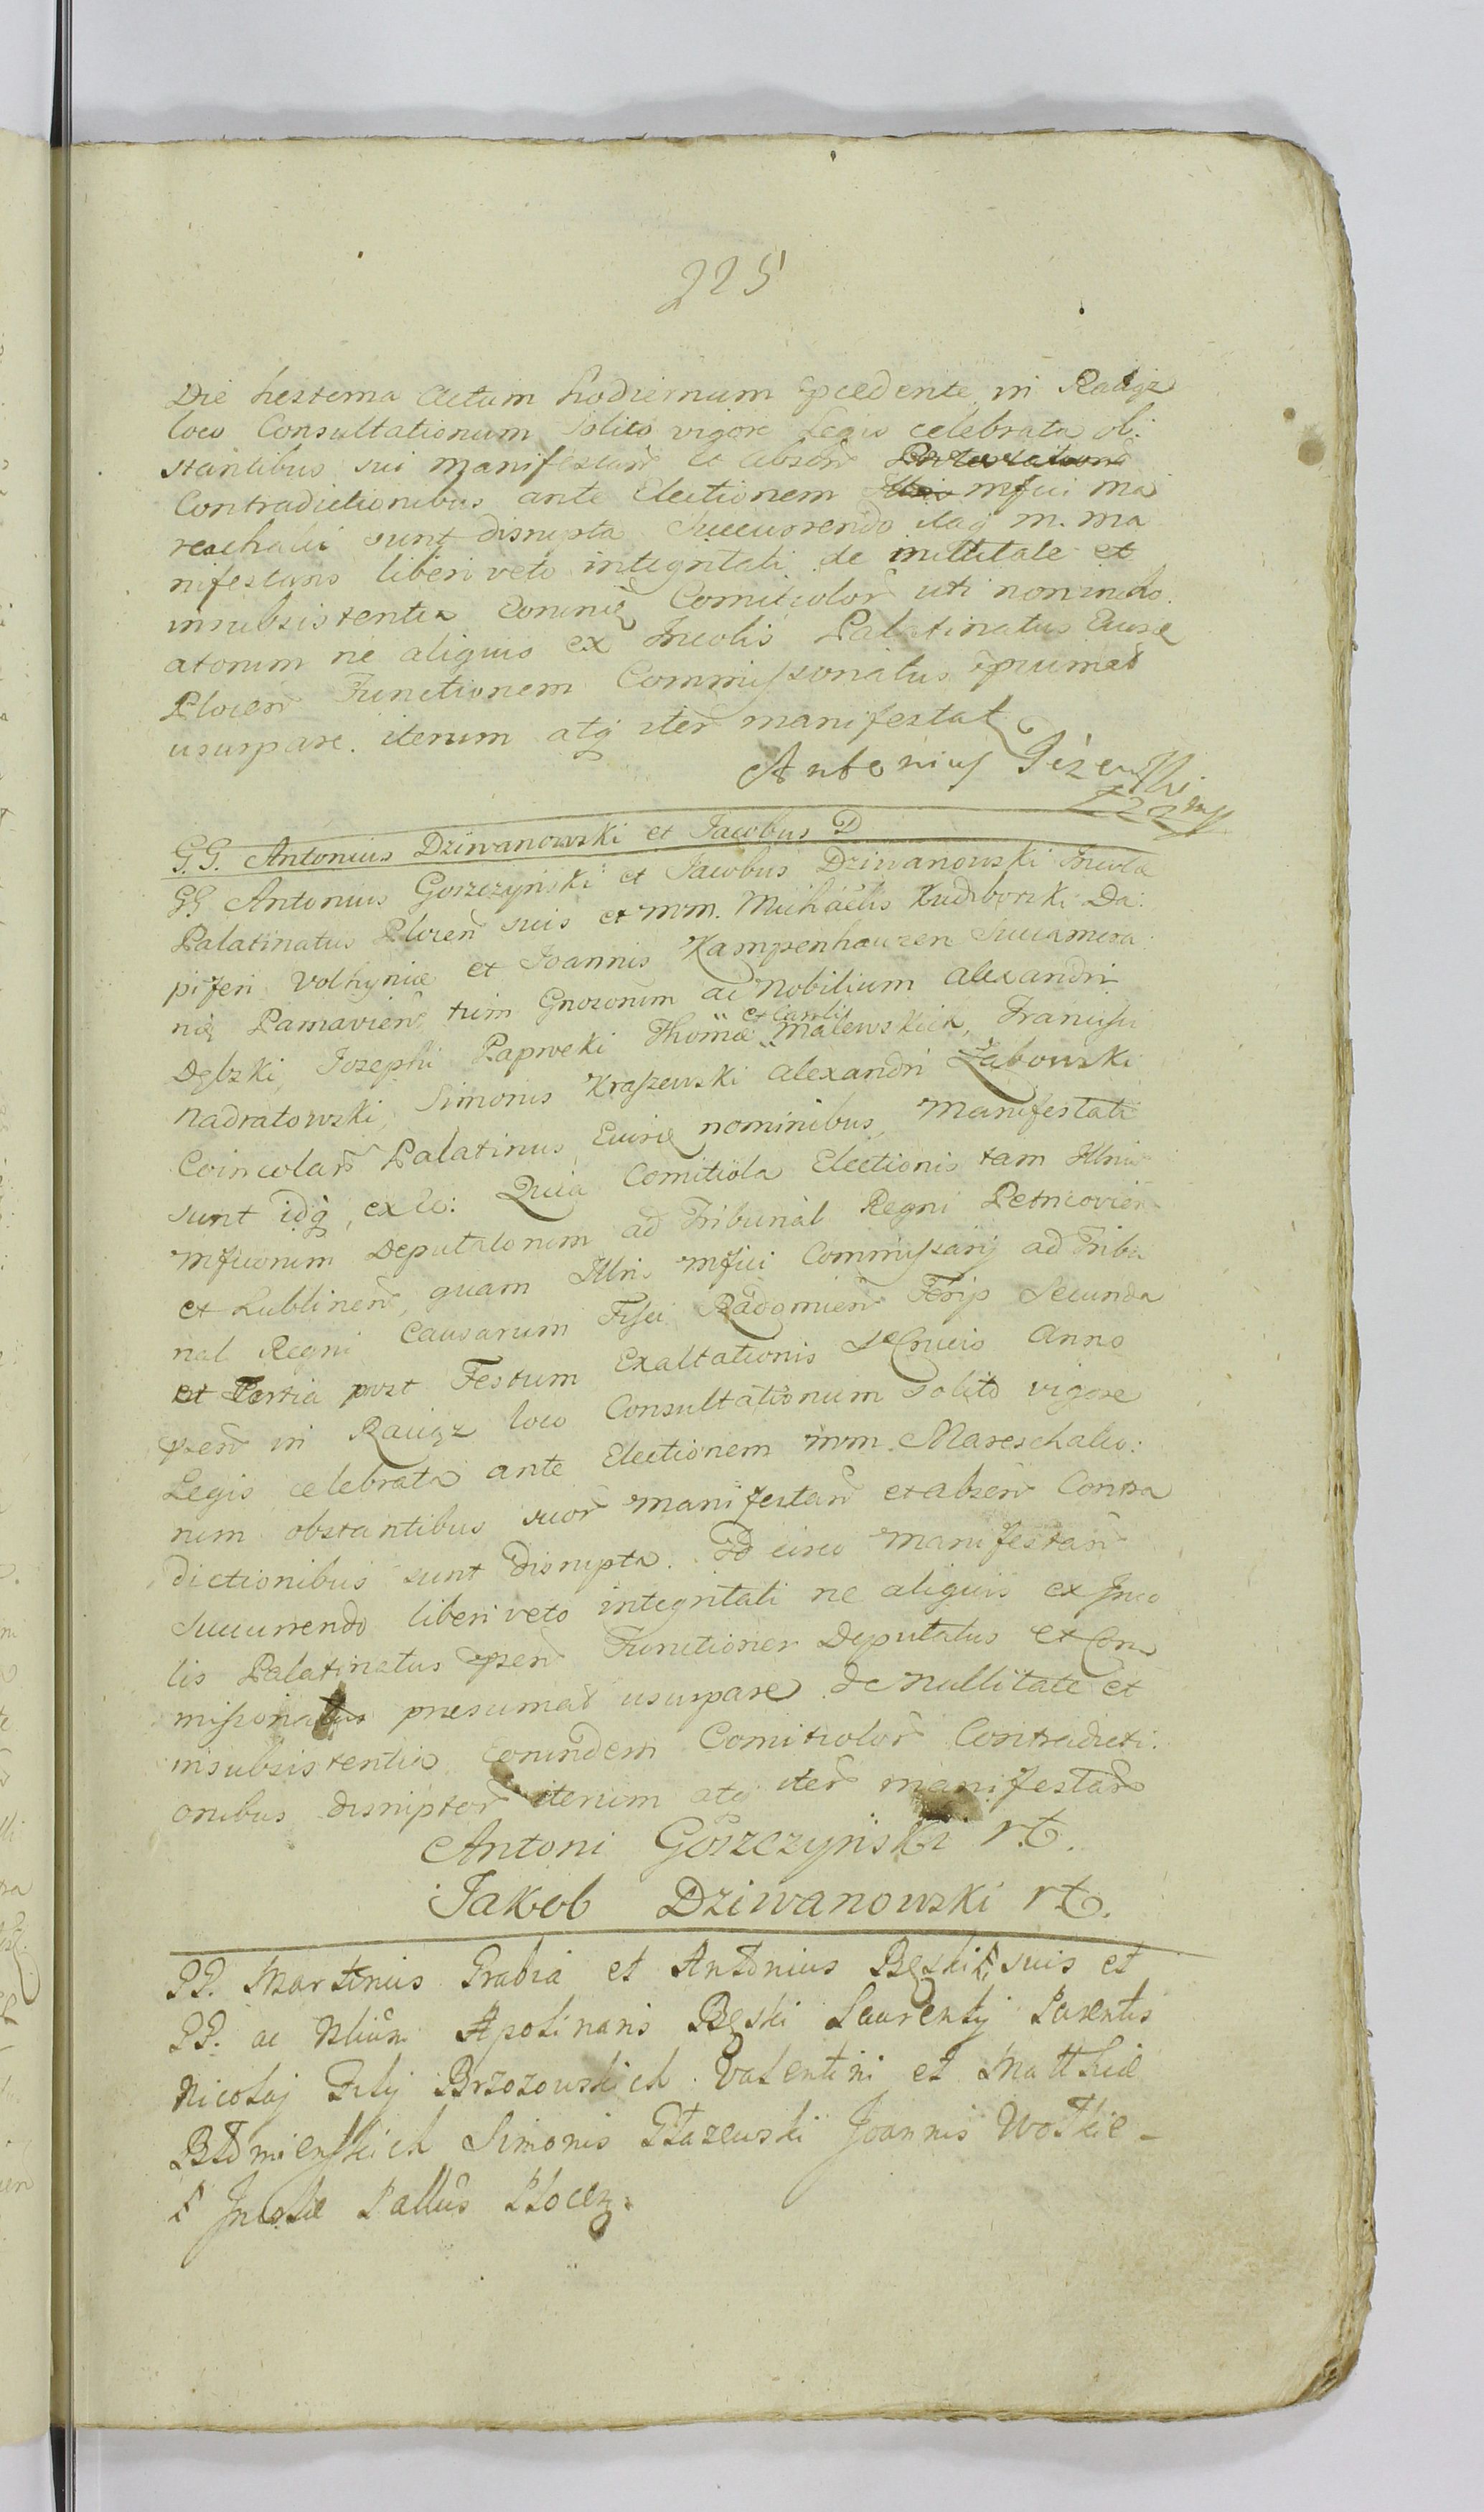 225
Die hesterna Actum hodiernum pcedente in Raciąz
loco Consultationum solito vigore Legis celebrata ob:
stantibus sui manifestan et absen
Contradictionibus ante Electionem mfici ma
reschalci sunt disrupta Succurrendo itaq m. ma
nifestans liberi veto integritati de nullitate et
insubsistentia Comitiolor uti non incho
atorum ne aliquis ex Incolis Palatinatus
Plocen Functionem Commissoriatus psumat
usurpare. iterum atq iter manifestat
Antonius
G.G. Antonius Dziwanowski et Jacobus D
GG Antonius Gorzczyński et Jacobus Dziwanowski Incola
Palatinatus Plocen suis et mm. Michaelis Kuciborski Da:
piferi Volhyniæ et Joannis Kampenhauzen Succamera:
rię Parnavien tum Gnosorum ac Nobilium Alexandri
Dębski, Jozephi Paprocki Thomæ et Caroli Malewskich, Francisci
Nadratowski, Simonis Kraszewski Alexandri Żabowski
Coincolar Palatinus Eiusd nominibus, Manifestati
sunt idq, ex eo: Quia Comitiola Electionis tam Illrium
Mficorum Deputatorum ad Tribunal Regni Petricovien
et Lublinen, quam Illris Mfici Commissarij ad Tribu
nal Regni Causarum Fisci Radomien Ferijs Secunda
et Tertia post Festum Exaltationis S Crucis Anno
psen in Raciąz loco Consultationum solito vigore
Legis celebrata ante Electionem mm. Mareschalco:
rum obstantibus suor manifestan et absen Contra
dictionibus sunt disrupta. Id circo Manifestan
Succurrendo liberi veto integritati ne aliquis ex Inco
lis Palatinatus psen Functiones Deputatus et Com
missoriatus presumat usurpare de Nullitate et
insubsistentia Eorundem Comitiolor Contradicti:
onibus disruptor iterum atq iter manifestan
Antoni Gorzczyński rt.
Jakob Dziwanowski rt.
PP. Martinus Grabia et Antonius Bęski suis et
PP. ac Nlium Apolinaris Bęski Laurentij Parentis
Nicolaj Filij Brzozowskich Valentini et Matthiæ
Simonis Głazewski Joannis
Incolæ Pallus Płocen.